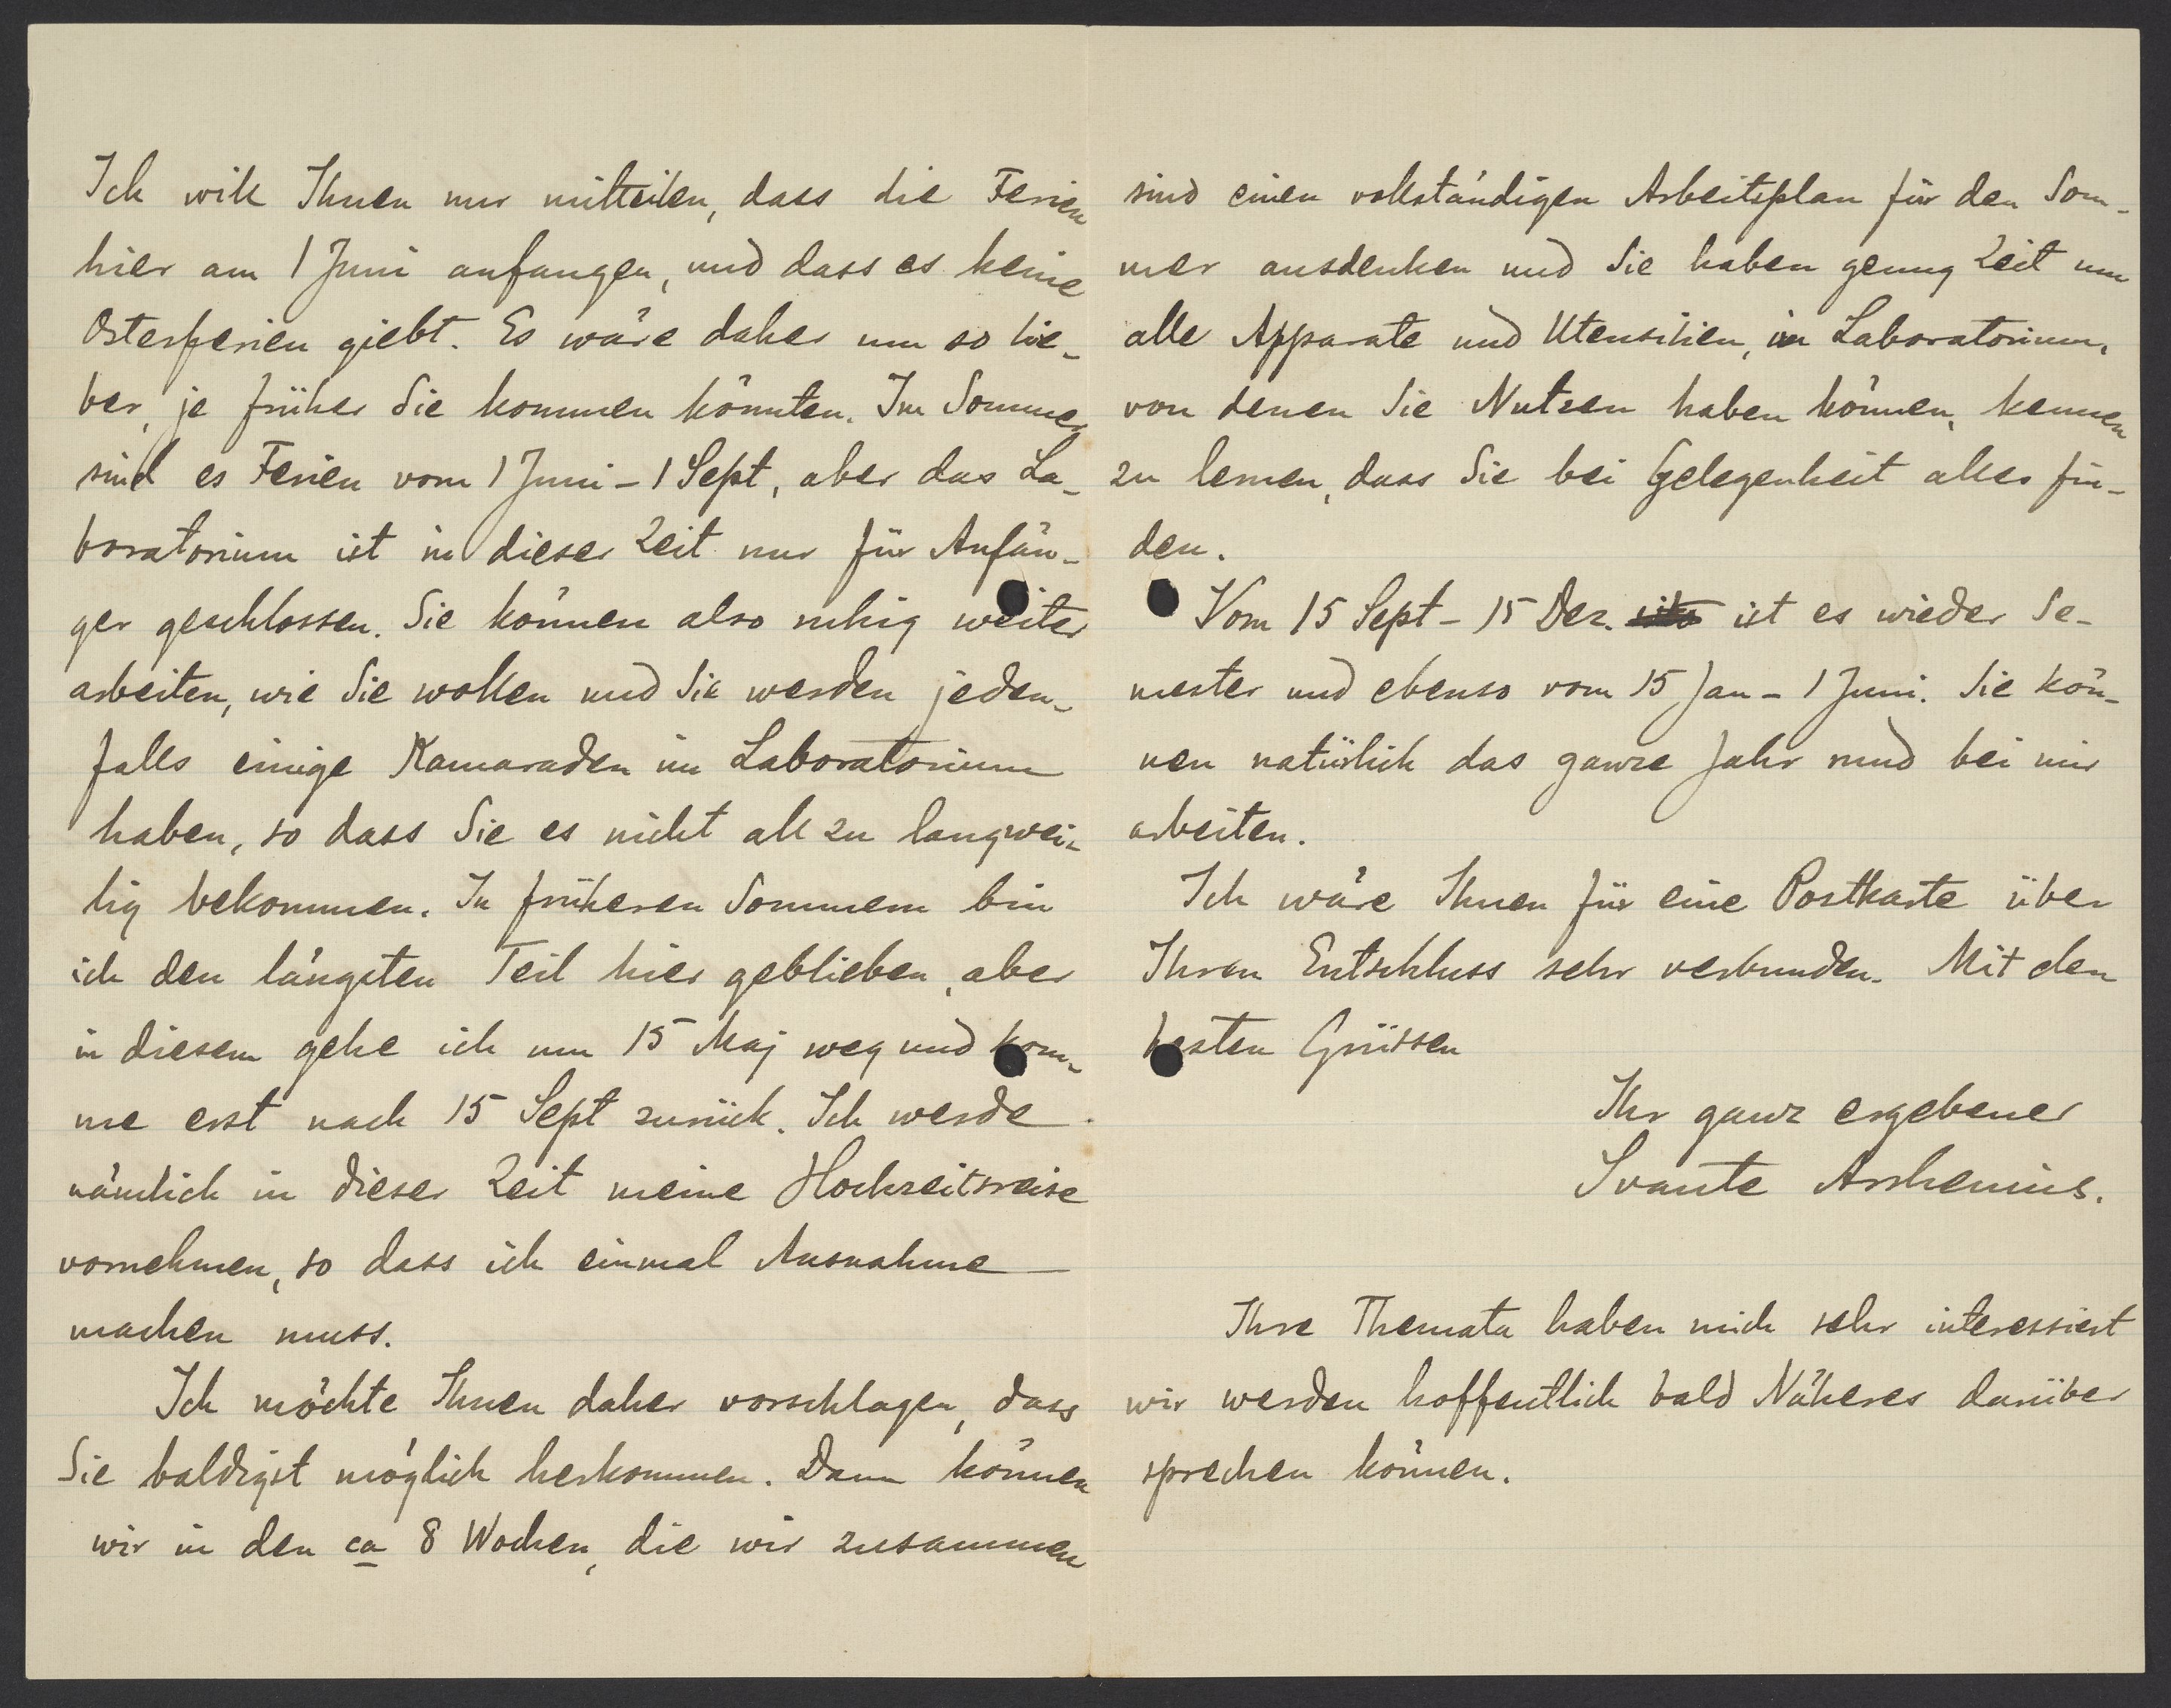 Ich will Ihnen nur mitteilen, dass die Ferien
hier am 1 Juni anfangen, und dass es keine
Osterferien giebt. Es wäre daher um so lie-
ber, je früher Sie kommen könnten. Im Sommer
sind es Ferien vom 1 Juni - 1 Sept, aber das La-
boratorium ist in dieser Zeit nur für Anfän-
ger geschlossen. Sie können also ruhig weiter
arbeiten, wie Sie wollen und Sie werden jeden-
falls einige Kamaraden im Laboratorium
haben, so dass Sie es nicht all zu langwei-
lig bekommen. In früheren Sommern bin
ich den längsten Teil hier geblieben, aber
in diesem gehe ich um 15 Maj weg und kom-
me erst nach 15 Sept zurück. Ich werde
nämlich in dieser Zeit meine Hochzeitsreise
vornehmen, so dass ich einmal Ausnahme
machen muss.
Ich möchte Ihnen daher vorschlagen, dass
Sie baldigst möglich herkommen. Dann können
wir in den ca 8 Wochen, die wir zusammen
sind einen vollständigen Arbeitsplan für den Som-
mer ausdenken und Sie haben genug Zeit um
alle Apparate und Utensilien, im Laboratorium,
von denen Sie Nutzen haben können, kennen
zu lernen, dass Sie bei Gelegenheit alles fin-
den.
Vom 15 Sept - 15 Dez. ist es wieder Se-
mester und ebenso vom 15 Jan - 1 Juni. Sie kön-
nen natürlich das ganze Jahr rund bei mir
arbeiten.
Ich wäre Ihnen für eine Postkarte über
Ihren Entschluss sehr verbunden. Mit den
besten Grüssen
Ihr ganz ergebener
Svante Arrhenius.
Ihre Themata haben mich sehr interessiert
wir werden hoffentlich bald Näheres darüber
sprechen können.